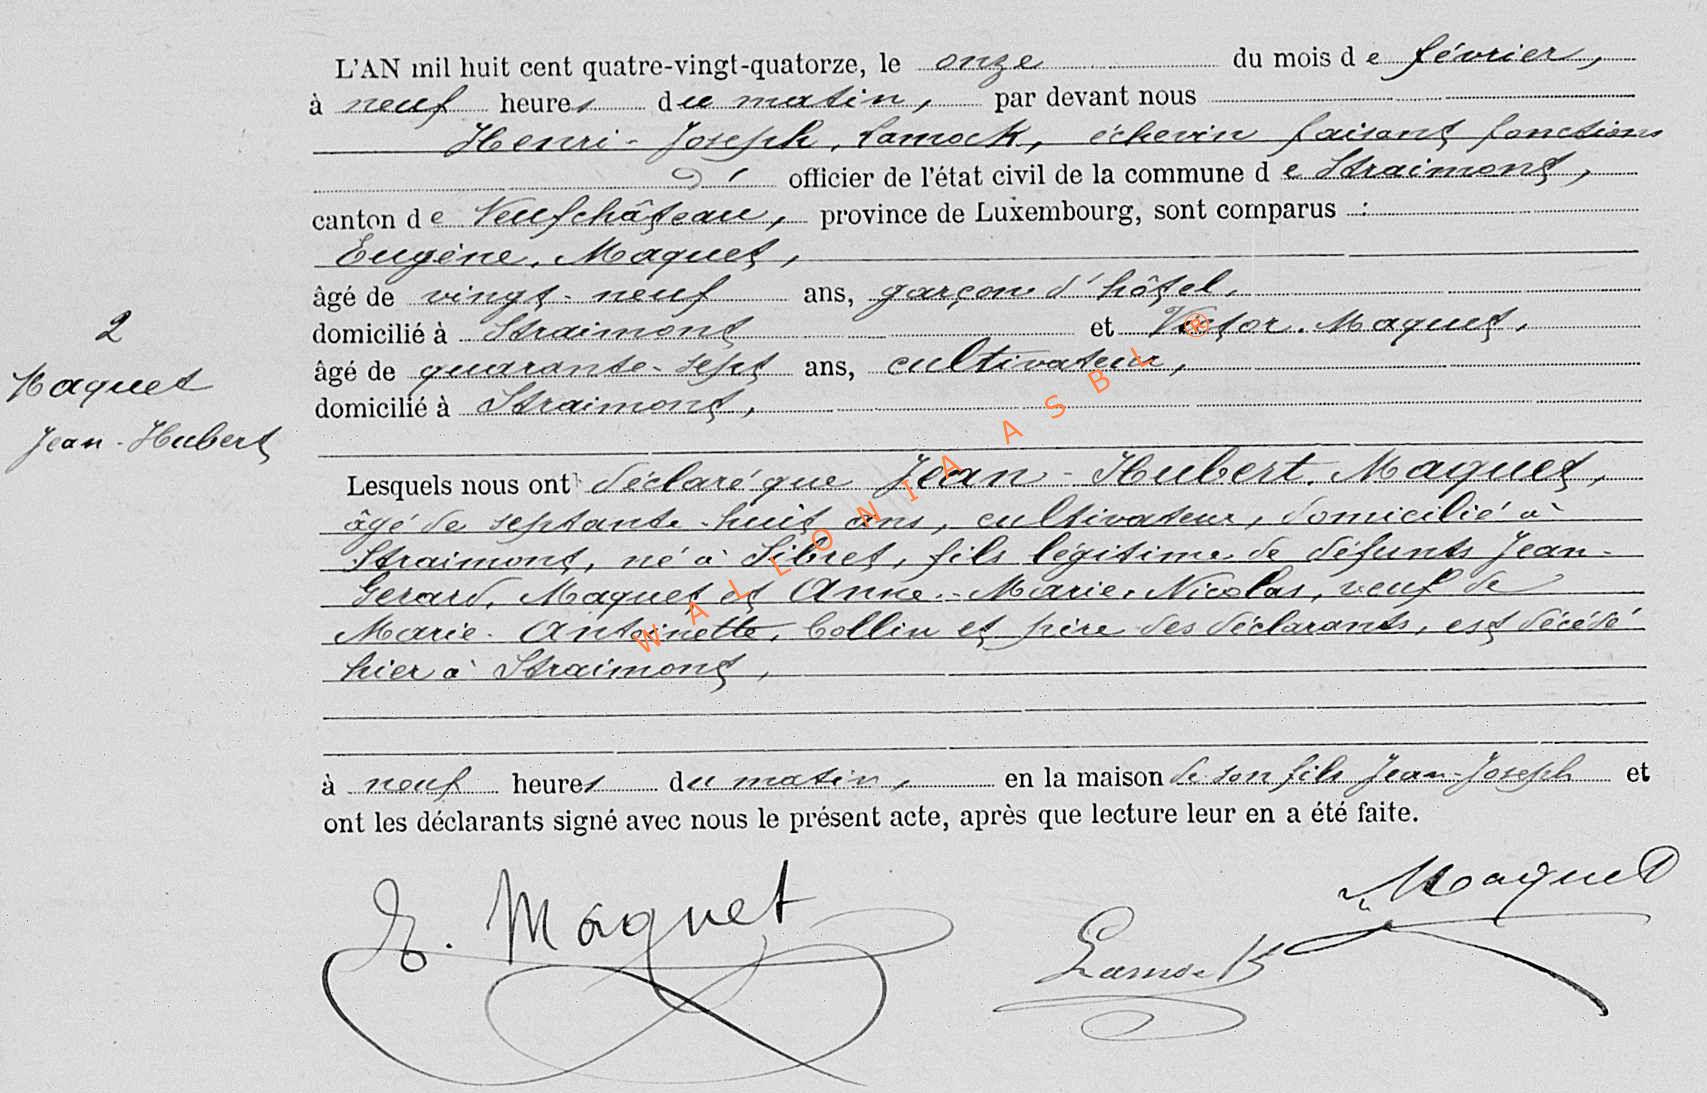 L'AN mil huit cent quatre-vingt-quatorze, le onze du mois de février,
à neuf heures du matin, par devant nous
Henri-Joseph, Lamock, échevin faisant fonctions
d' officier de l'état civil de la commune de Straimont,
canton de Neufchâteau, province de Luxembourg, sont comparus :
Eugène, Maquet,
âgé de vingt-neuf ans, garçon d'hôtel,
domicilié à Straimont et Victor. Maquet,
âgé de quarante-sept ans, cultivateur,
domicilié à Straimont,
2
Maquet
Jean-Hubert
Lesquels nous ont déclaré que Jean-Hubert. Maquet,
âgé de septante-huit ans, cultivateur, domicilié à
Straimont, né à Sibret, fils légitime de défunts Jean-
Gerard, Maquet et Anne-Marie, Nicolas, veuf de
Marie-Antoinette, Collin et père des déclarants, est décédé
hier à Straimont,
à neuf heures du matin, en la maison de son fils Jean-Joseph et
ont les déclarants signé avec nous le présent acte, après que lecture leur en a été faite.
E. Maquet
Lamock
V. Maquet
WALLONIA ASBL ®